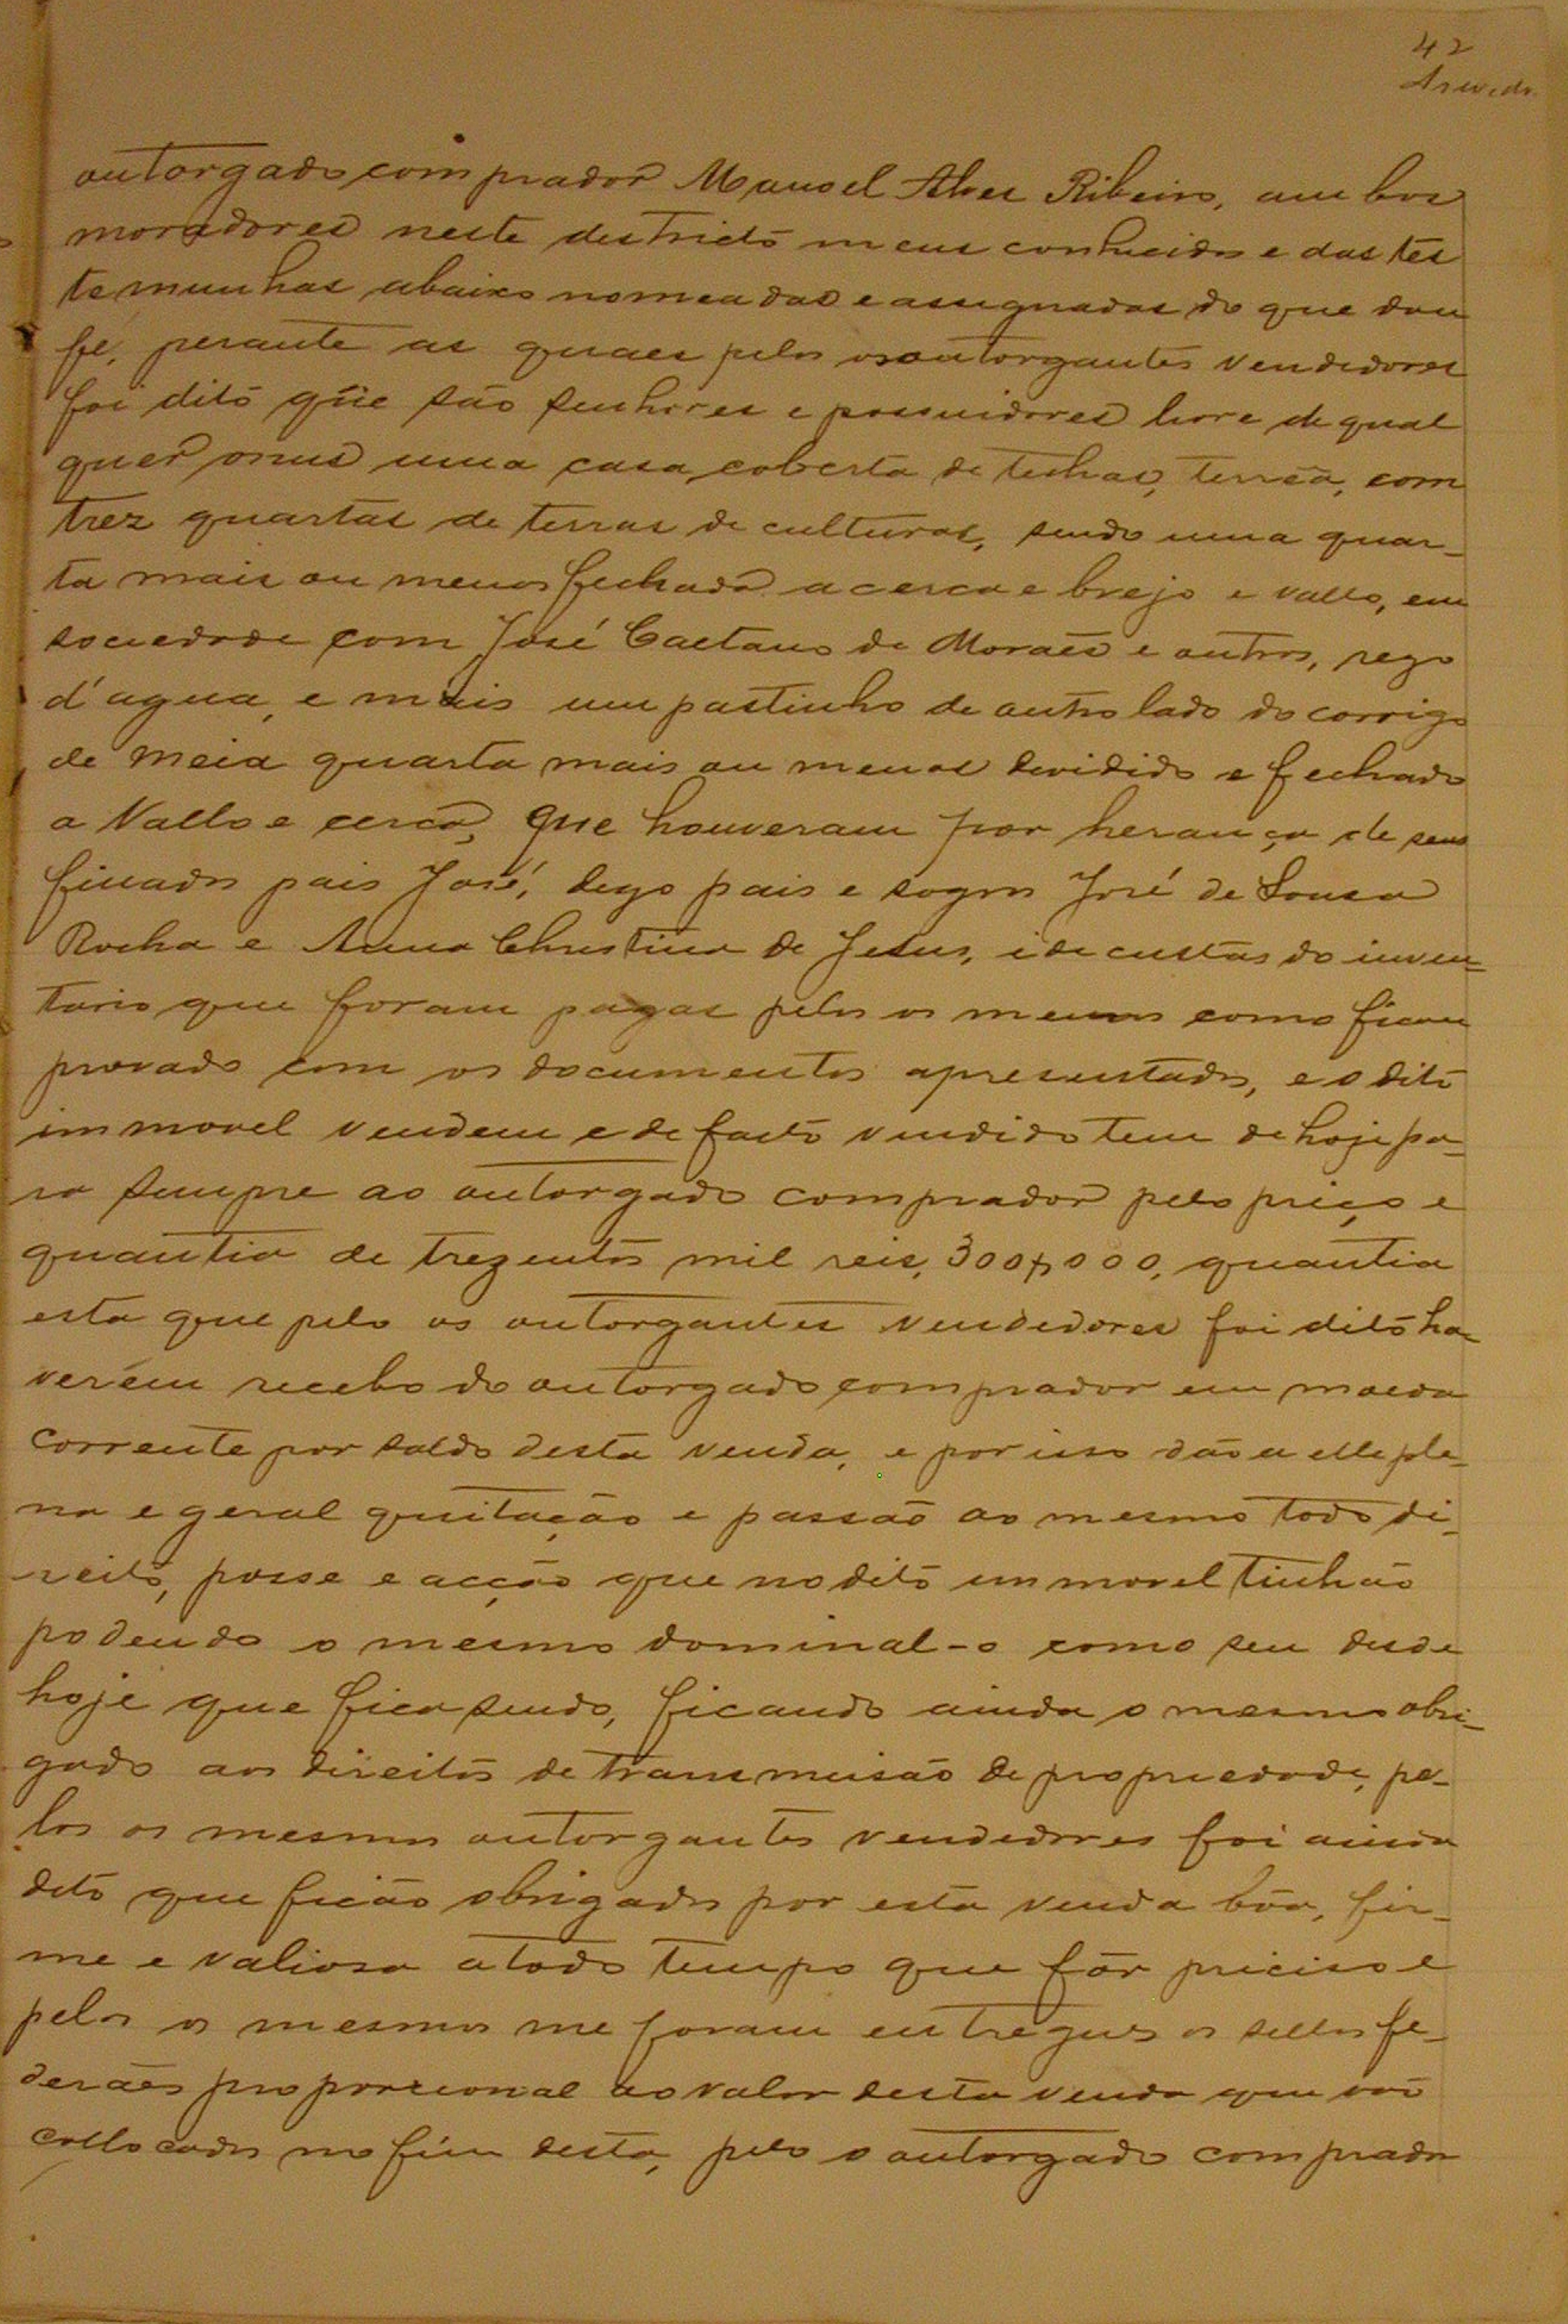 42
Azevedo
outorgado comprador Manoel Alves Ribeiro, ambos
moradores neste districto meus conhecidos e das tes
temunhas abaixo nomeadas e assignadas do que dou
fé, perante as quaes pelos os outorgantes vendedores
foi dito que são senhores e possuidores livre de qual
quer onus uma casa coberta de telhas, terrea, com
trez quartas de terras de culturas, sendo uma quar-
ta mais ou menos fechada a cerca e brejo e vallo, em
sociedade com José Caetano de Moraes e outros, rego
d'agua, e mais um pastinho de outro lado do corrigo
de meia quarta mais ou menos devidido e fechado
a Vallo e cerca, que houveram por herança de seus
finados pais José, digo pais e sogros José de Sousa
Rocha e Anna Christina de Jesus, e de custas do inven-
tario que foram pagas pelos os mesmos como ficou
provado com os documentos apresentados, e o dito
immovel vendem e de facto vendido tem de hoje pa-
ra sempre ao outorgado comprador pelo preço e
quantia de trezentos mil reis, 300$000, quantia
esta que pelo os outorgantes vendedores foi dito ha-
verem recebo do outorgado comprador em moeda
corrente por saldo desta venda, e por isso dão a elle ple-
na e geral quitação e passão ao mesmo todo di-
reito, posse e acção que no dito immovel tinhão
podendo o mesmo dominal-o como seu desde
hoje que fica sendo, ficando ainda o mesmo obri-
gado aos direitos de transmeisão de propriedade, pe-
los os mesmos outorgantes vendedores foi ainda
dito que ficão obrigados por esta venda bôa, fir-
me e valiosa a todo tempo que fôr preciso e
pelos os mesmos me foram entregues os sellos fe-
deraes proporcional ao valor desta venda que vai
collocados no fim desta, pelo o outorgado comprador